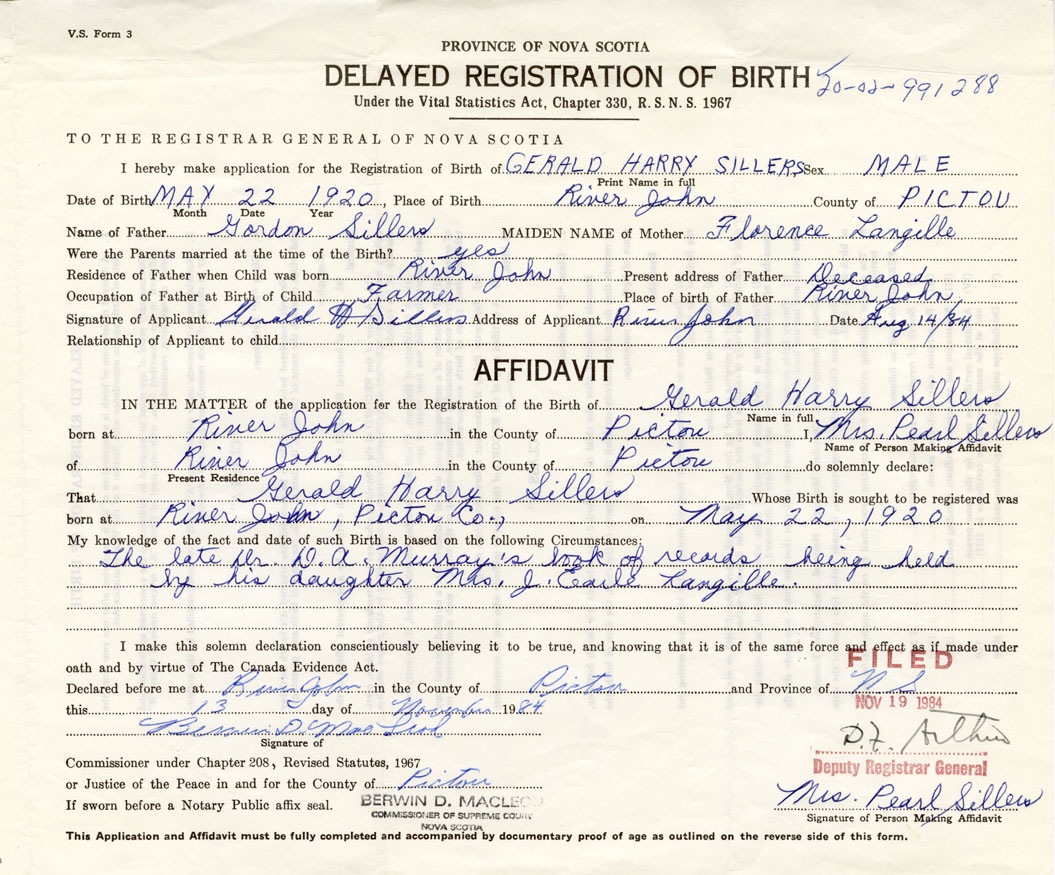 V.S. Form 3
PROVINCE OF NOVA SCOTIA
DELAYED REGISTRATION OF BIRTH 20-02-991288
Under the Vital Statistics Act, Chapter 330, R.S.N.S. 1967
TO THE REGISTRAR GENERAL OF NOVA SCOTIA
I hereby make application for the Registration of Birth of GERALD HARRY SILLERS Sex MALE
Print Name in full
Date of Birth MAY 22 1920, Place of Birth River John County of PICTOU
Month Date Year
Name of Father Gordon Sillers MAIDEN NAME of Mother Florence Langille
Were the Parents married at the time of the Birth? yes
Residence of Father when Child was born River John Present address of Father Deceased
Occupation of Father at Birth of Child Farmer Place of birth of Father River John,
Signature of Applicant Gerald H Sillers Address of Applicant River John Date Aug 14/84
Relationship of Applicant to child
AFFIDAVIT
IN THE MATTER of the application for the Registration of the Birth of Gerald Harry Sillers
Name in full
born at River John in the County of Pictou I, Mrs. Pearl Sillers
Name of Person Making Affidavit
of River John in the County of Pictou do solemnly declare:
Present Residence
That Gerald Harry Sillers Whose Birth is sought to be registered was
born at River John, Pictou Co., on May 22, 1920
My knowledge of the fact and date of such Birth is based on the following Circumstances:
The late Dr. D. A. Murray's book of records being held
by his daughter Mrs. J. Earle Langille.
I make this solemn declaration conscientiously believing it to be true, and knowing that it is of the same force and effect as if made under
oath and by virtue of The Canada Evidence Act.
FILED
Declared before me at River John in the County of Pictou and Province of N S
this 13 day of November 1984
NOV 19 1984
Berwin D. MacLeod
Signature of
D. F. Arthur
Commissioner under Chapter 208, Revised Statutes, 1967
Deputy Registrar General
or Justice of the Peace in and for the County of Pictou
If sworn before a Notary Public affix seal.
BERWIN D. MACLEOD
COMMISSIONER OF SUPREME COURT
NOVA SCOTIA
Mrs. Pearl Sillers
Signature of Person Making Affidavit
This Application and Affidavit must be fully completed and accompanied by documentary proof of age as outlined on the reverse side of this form.